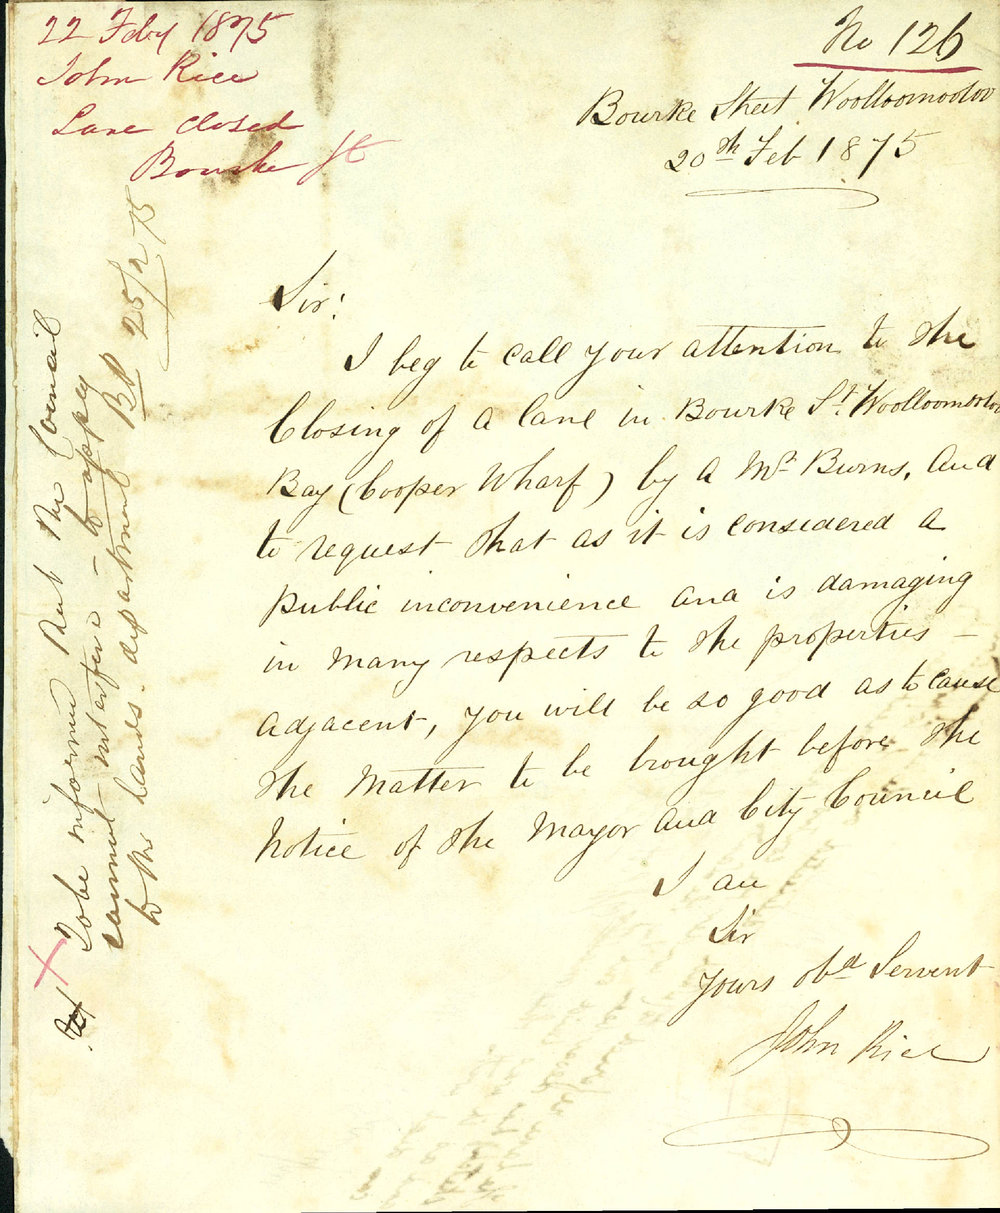 22 Feby 1875
John Rice
Lane closed
Bourke St
No 126
Bourke Street Woolloomooloo
20th Feb 1875
Sir!
I beg to call your attention to the
Closing of a lane in Bourke St. Woolloomooloo
Bay (Cooper Wharf) by a Mr Burns, and
to request that as it is considered a
public inconvenience and is damaging
in many respects to the properties –
adjacent, you will be so good as to cause
the Matter to be brought before the
Notice of the Mayor and City Council
I am
Sir
Yours Obd Servent
John Rice
To be informed that the Council
cannot interfere – to apply
to the lands department BP 25/2 75